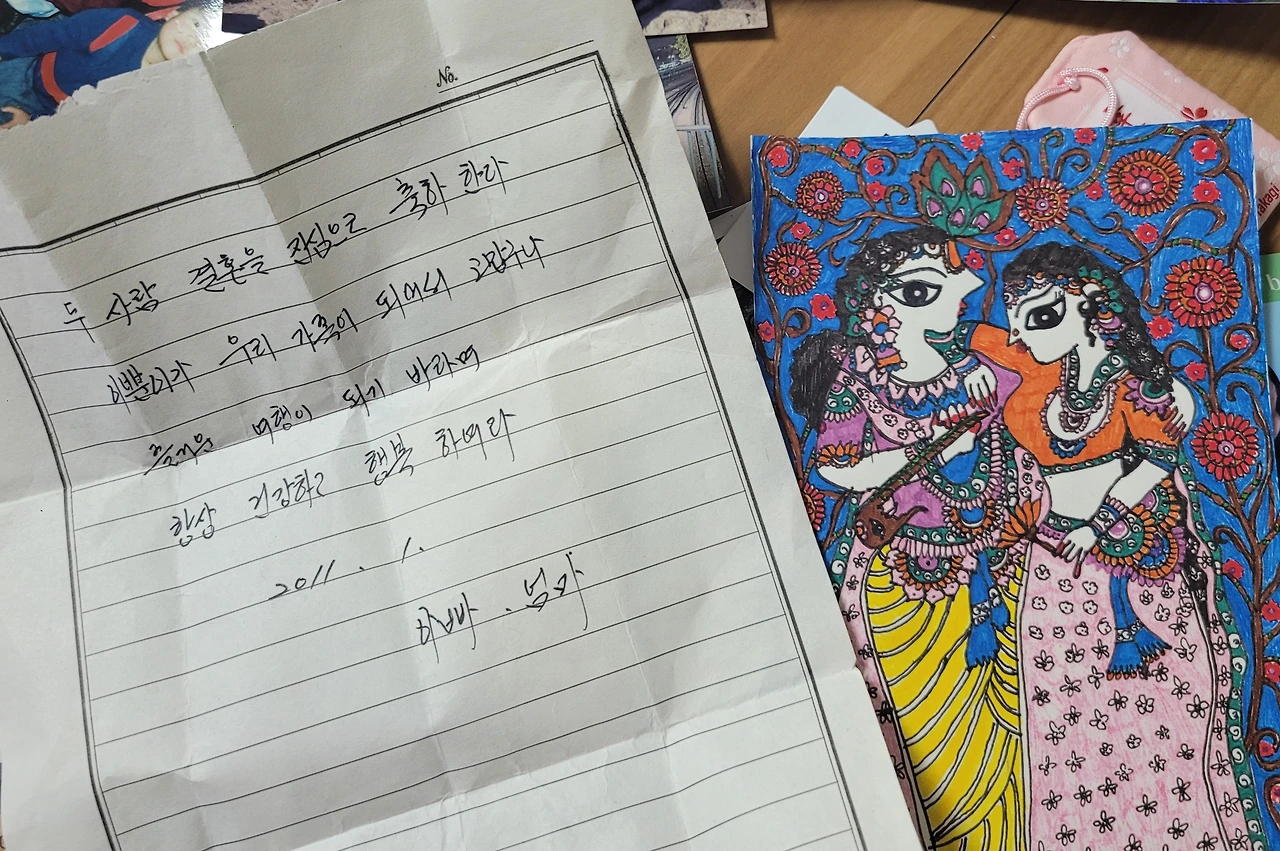 No.
두 사람 결혼을 진심으로 축하 한다
우리 가족이 되어서 고맙구나
즐거운 여행이 되기 바라며
항상 건강하고 행복 하여라
2011. 1.
아빠. 엄마
akagi
b